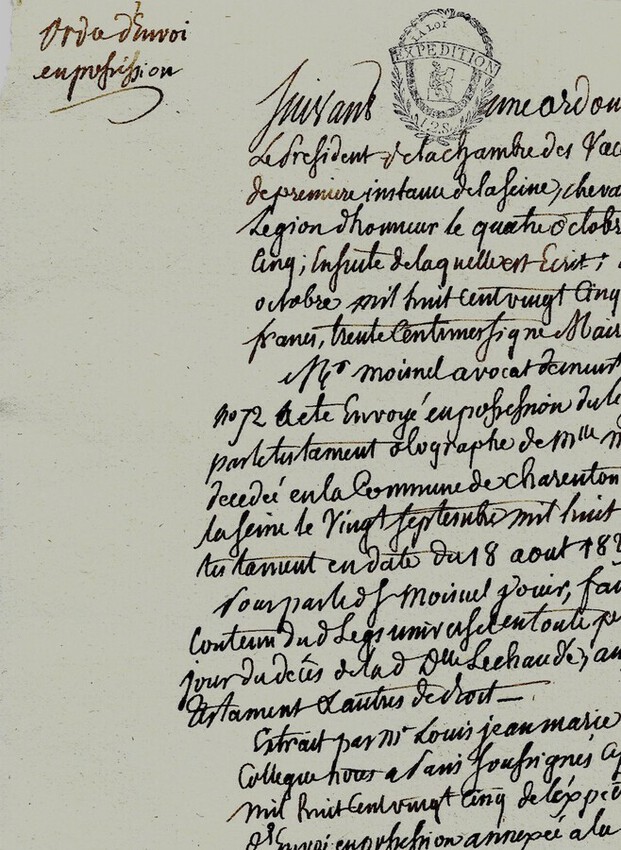 Orde d'Envoi
en possession
LA LOI
EXPEDITION
Suivant une ordon
Le President de la chambre des Vac
de premiere instance de la seine, cheva
Legion d'honneur le quatre octobr
Cinq; Ensuite de laquelle est Ecrit;
octobre mil huit cent vingt Cinq
francs, trente Centimes signé
Mr moisnel avocat demeur
no 72 a été Envoyé en possession du le
par le testament olographe de Mlle
decedée en la Commune de charenton
la seine le Vingt septembre mil huit
testament en date du 18 aout 182
Pour par led S. Moisnel jouir, fai
Contenu dud Legs universel en toute p
jour du décès de lad Dlle Lechaudé, au
testament & autres de droit —
Extrait par Mr Louis jean marie
Collegue nous a Paris soussignés
mil huit Cent vingt Cinq de l'expé
d'Envoi en possession annexée à la